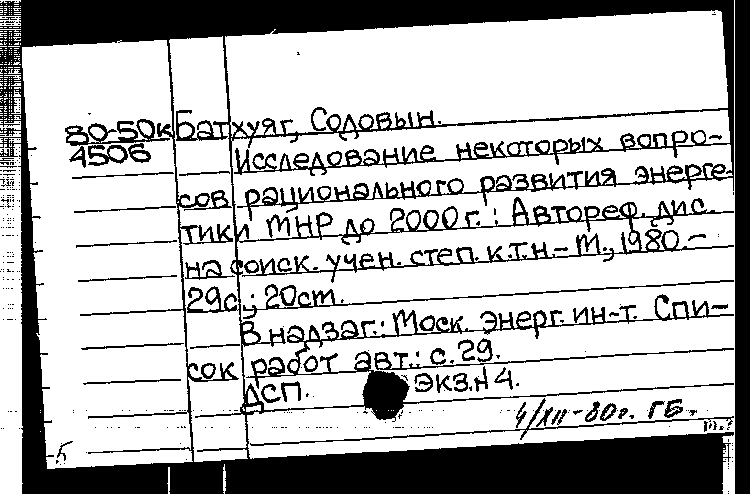 80-50к Батхуяг, Содовын.
4506 Исследование некоторых вопро-
сов рационального развития энерге-
тики МНР до 2000 г.: Автореф. дис.
на соиск. учен. степ. к.т.н. - М., 1980. -
29с.; 20см.
В надзаг.: Моск. энерг. ин-т. Спи-
сок работ авт.: с. 29.
ДСП. экз. н 4.
4/XII-80г. ГБ.
Б